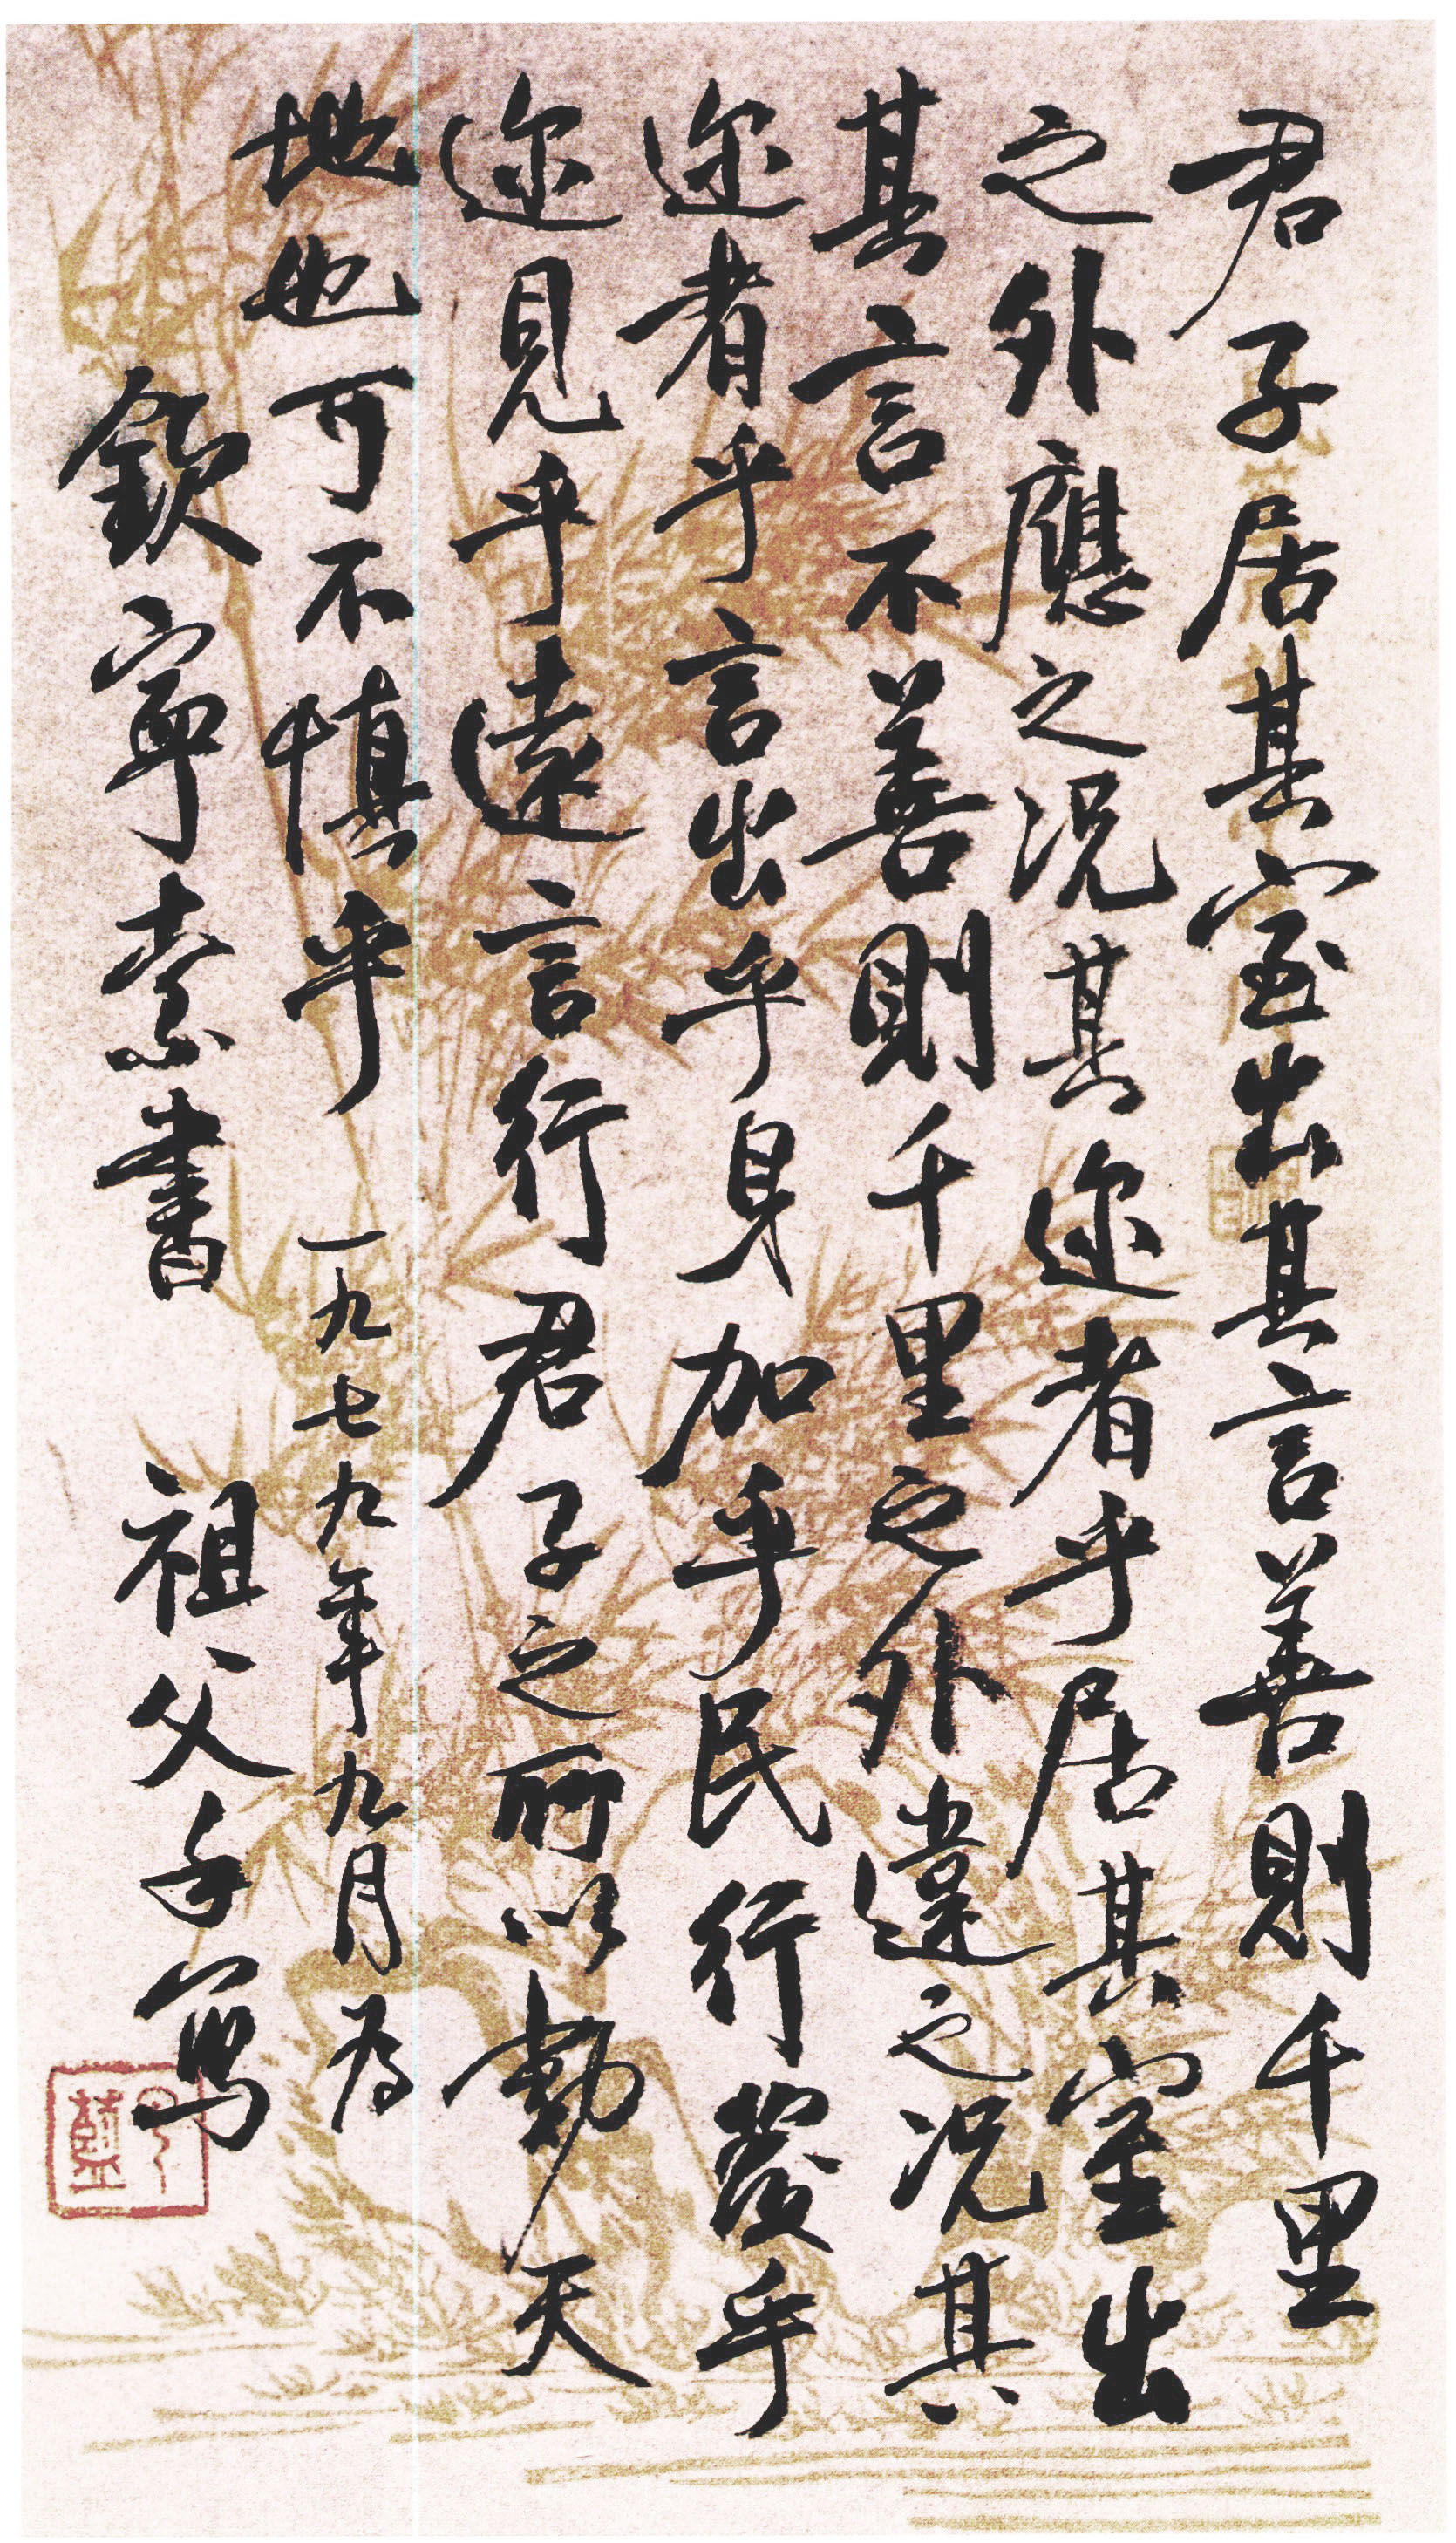 君子居其室出其言善則千里
之外應之况其迩者乎居其室出
其言不善則千里之外違之况其
迩者乎言出乎身加乎民行發乎
迩見乎遠言行君子之所以動天
地也可不慎乎 一九七九年九月為
欽寧索書 祖父手寫